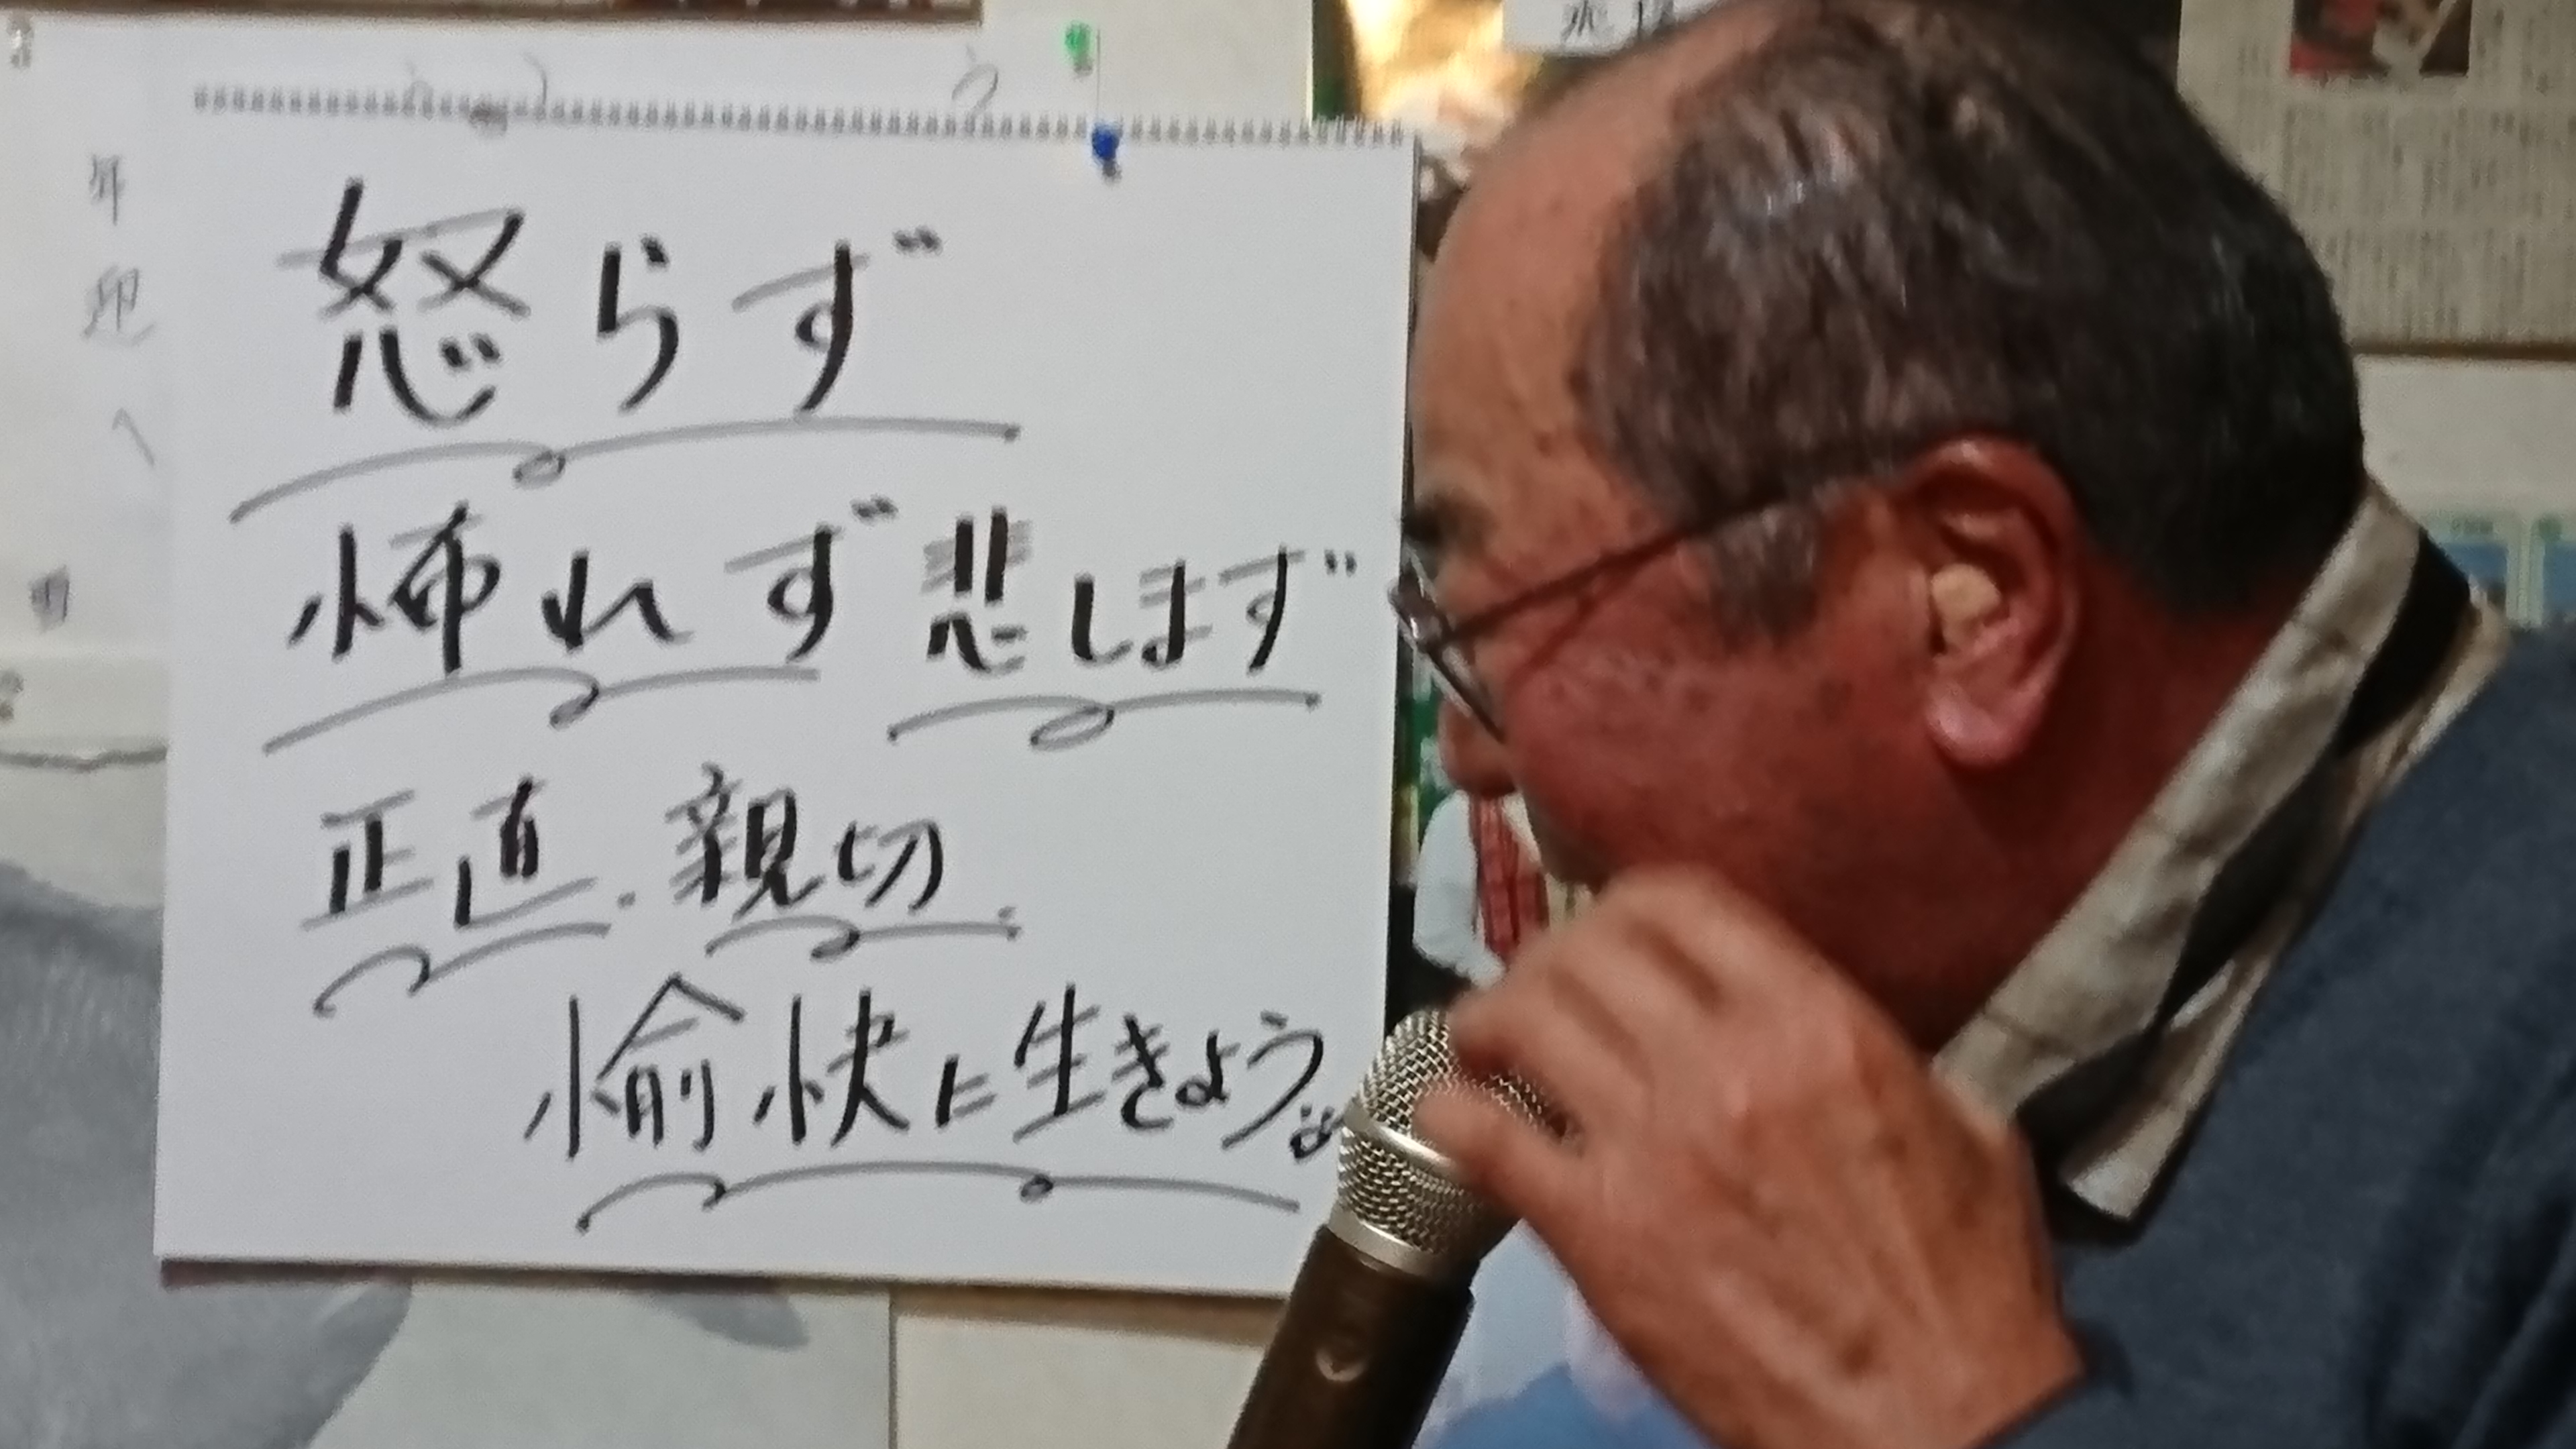 怒らず
怖れず 悲しまず
正直.親切.
愉快に生きよう